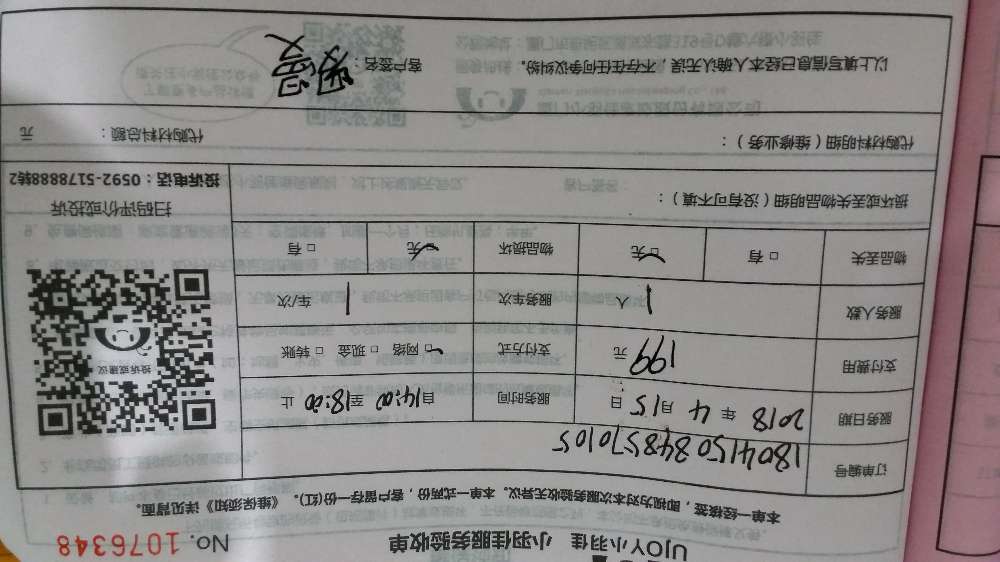 UJOY小羽佳 小羽佳服务验收单
No. 1076348
本单一经核签,即视为对本次服务验收无异议。本单一式两份,客户留存一份(红)。《维保须知》详见背面。
订单编号 180415084857010５
服务日期 2018 年 4 月 15 日 服务时间 自 14:00 至 18:00 止
支付费用 199 元 支付方式 □ 网络 □ 现金 □ 转账
服务人数 1 人 服务车次 1 车/次
物品丢失 □ 有 □ 无 物品损坏 □ 无 □ 有
投诉或建议
扫码评价或投诉
投诉电话:0592-5178888转2
损坏或丢失物品明细(没有可不填):
代购材料明细(维修业务): 代购材料总额: 元
以上填写信息已经本人确认无误,不存在任何争议纠纷。 客户签名: